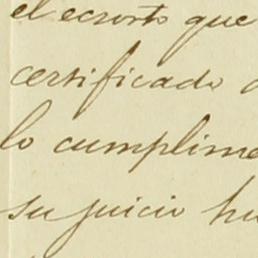 el ecrorto que
certificado
lo cumplime
su juicio hu